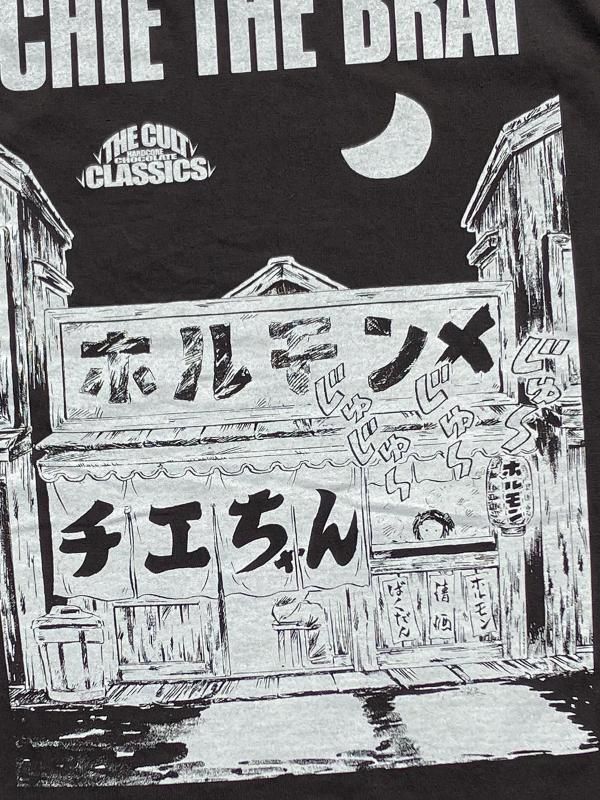 CHIE THE BRAT
THE CULT
HARDCORE
CHOCOLATE
CLASSICS
ホルモン
じゅ～
じゅ～
じゅ～
じゅ～
チエちゃん
ホルモン
ばくだん
清酒
ホルモン